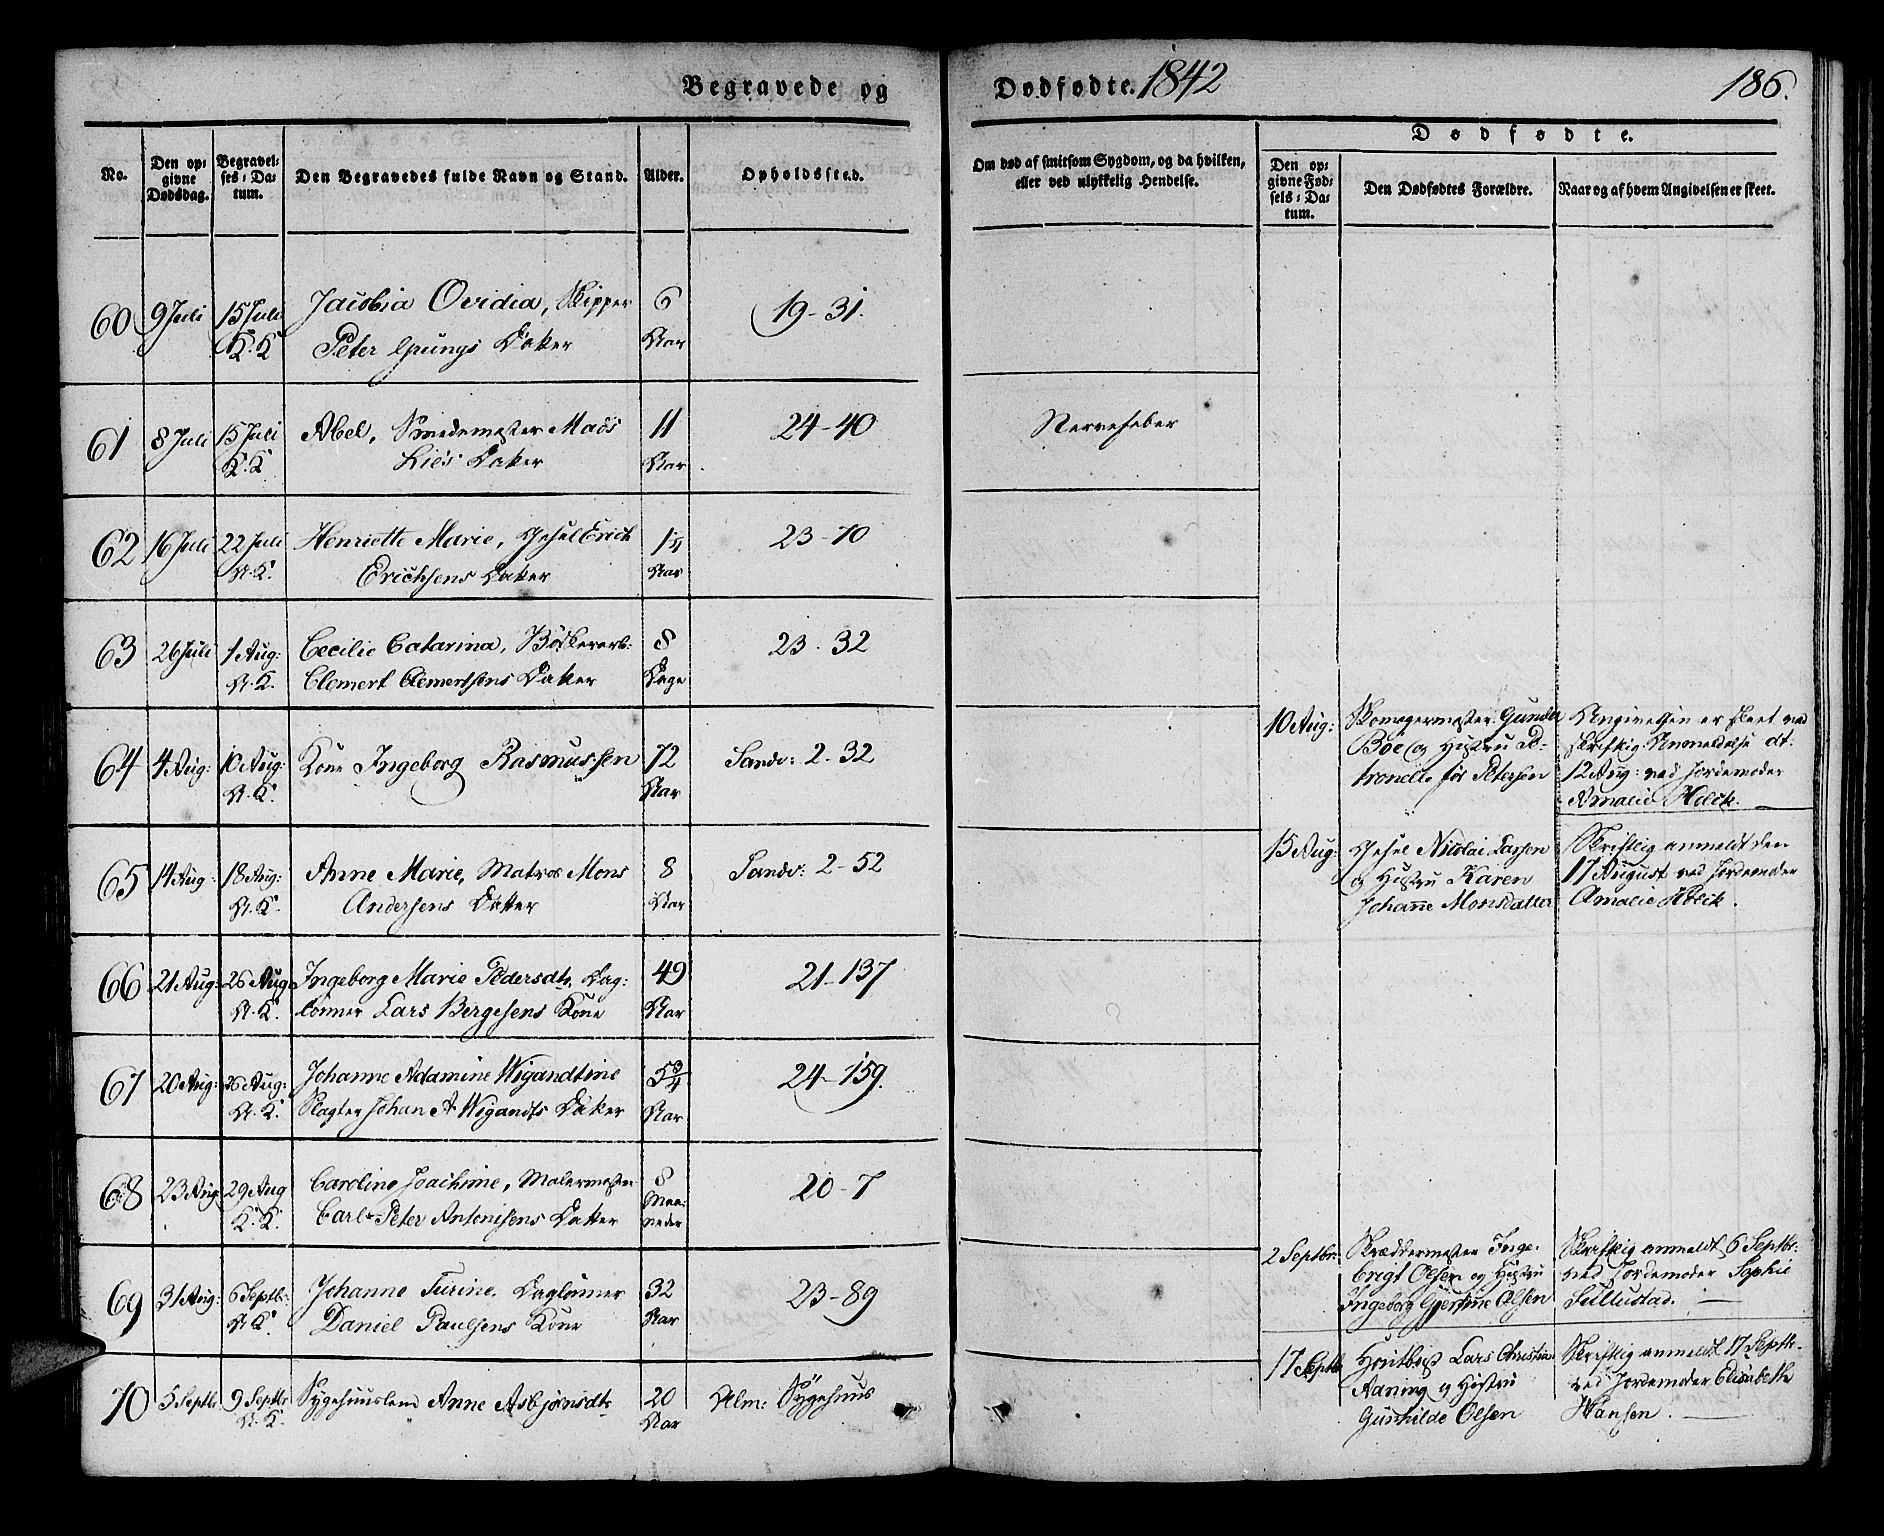 Begravede og
Dødfødte. 1842
186.
No.
Den op-
givne
Dødsdag.
Begravel-
ses-Da-
tum.
Den Begravedes fulde Navn og Stand.
Alder.
Opholdssted.
Om død af smitsom Sygdom, og da hvilken,
eller ved ulykkelig Hendelse.
Dødfødte.
Den op-
givne Fød-
sels-Da-
tum.
Den Dødfødtes Forældre.
Naar og af hvem Angivelsen er skeet.
60 9 Juli 15 Juli Jacobia Ovidia, Skipper 6 19-31.
K.K Peter Datter Aar
61 8 Juli 15 Juli Abel, Smedemester Mads 11 24-40 Nervefeber
K.K Lie's Datter Aar
62 16 Juli 22 Juli Henriette Marie, Erich 1¼ 23-70
N.K. Erichsens Datter Aar
63 26 Juli 1 Aug: Cecilie Catarina, 8 23-32
N.K. Clemert Clemertsens Datter Dage
64 4 Aug: 10 Aug: Kone Ingeborg Rasmussen 72 Sandv: 2-32
N.K. Aar
10 Aug: Skomagermester Gunder
Böe og Hustru Pe-
tronelle för Petersen
Angivelsen er skeet ved
skriftlig Anmeldelse dt:
12 Aug: ved Jordemoder
Amalie Holck.
65 14 Aug: 18 Aug: Anne Marie, Matros Mons 8 Sandv: 2-52
N.K. Andersens Datter Aar
15 Aug: Nicolai Lassen
og Hustru Karen
Johanne Monsdatter
Skriftlig anmeldt den
17 August ved Jordemoder
Amalie Holck.
66 21 Aug: 26 Aug Ingeborg Marie Pedersdtr. Dag- 49 21-137
N.K. lönner Lars Bergesens Kone Aar
67 20 Aug: 26 Aug: Johanne Adamine Wigandtine 5¾ 24-159.
N.K. Slagter Johan A Wigandts Datter Aar
68 23 Aug 29 Aug Caroline Joachime, Malermester 8 20-7
K.K. Carl Peter Antonisens Datter Maa-
neder
69 31 Aug: 6 Septbr: Johanne Turine, Daglönner 32 23-89
N.K. Daniel Paulsens Kone Aar
2 Septbr: Skræddermester Inge-
brigt Olsen og Hustru
Ingeborg Gjertine Olsen
Skriftlig anmeldt 6 Septbr:
ved Jordemoder Sophie
70 5 Septbr 9 Septbr Sygehuuslem Anne Asbjörnsdtr 20 Alm: Sygehuus
N.K. Aar
17 Septbr Lars Christian
Aaning og Hustru
Gunhilde Olsen
Skriftlig anmeldt 17 Septbr.
ved Jordemoder Elisabeth
Hansen.